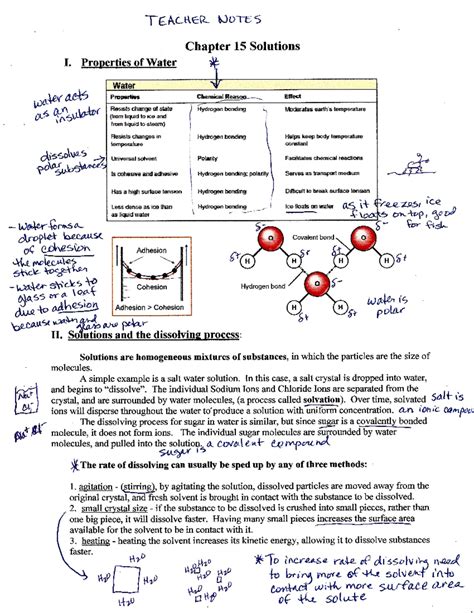 TEACHER NOTES
Chapter 15 Solutions
I. Properties of Water
*
Water
Properties Chemical Reason Effect
Resists change of state (from liquid to ice and from liquid to steam) Hydrogen bonding Moderates earth's temperature
Resists changes in temperature Hydrogen bonding Helps keep body temperature constant
Universal solvent Polarity Facilitates chemical reactions
Is cohesive and adhesive Hydrogen bonding; polarity Serves as transport medium
Has a high surface tension Hydrogen bonding Difficult to break surface tension
Less dense as ice than as liquid water Hydrogen bonding Ice floats on water
water acts
as an
insulator
dissolves
polar
substances
as it freezes, ice
floats on top, good
for fish
- Water forms a
droplet because
of cohesion
the molecules
stick together
- Water sticks to
glass or a leaf
due to adhesion
because water and
glass are polar
Adhesion
Cohesion
Adhesion > Cohesion
δ- δ-
O Covalent bond O
δ+ H H δ+ H H δ+
Hydrogen bond O
H H
water is
polar
II. Solutions and the dissolving process:
Solutions are homogeneous mixtures of substances, in which the particles are the size of
molecules.
A simple example is a salt water solution. In this case, a salt crystal is dropped into water,
and begins to "dissolve". The individual Sodium Ions and Chloride Ions are separated from the
crystal, and are surrounded by water molecules, (a process called solvation). Over time, solvated
ions will disperse throughout the water to produce a solution with uniform concentration.
Salt is
an ionic
Na+
Cl-
Na+ Cl-
The dissolving process for sugar in water is similar, but since sugar is a covalently bonded
molecule, it does not form ions. The individual sugar molecules are surrounded by water
molecules, and pulled into the solution.
sugar is a covalent compound
* The rate of dissolving can usually be sped up by any of three methods:
1. agitation - (stirring), by agitating the solution, dissolved particles are moved away from the
original crystal, and fresh solvent is brought in contact with the substance to be dissolved.
2. small crystal size - if the substance to be dissolved is crushed into small pieces, rather than
one big piece, it will dissolve faster. Having many small pieces increases the surface area
available for the solvent to be in contact with it.
3. heating - heating the solvent increases its kinetic energy, allowing it to dissolve substances
faster.
H2O H2O
H2O H2O
H2O H2O
H2O H2O
* To increase rate of dissolving need
to bring more of the solvent into
contact with more surface area
of the solute